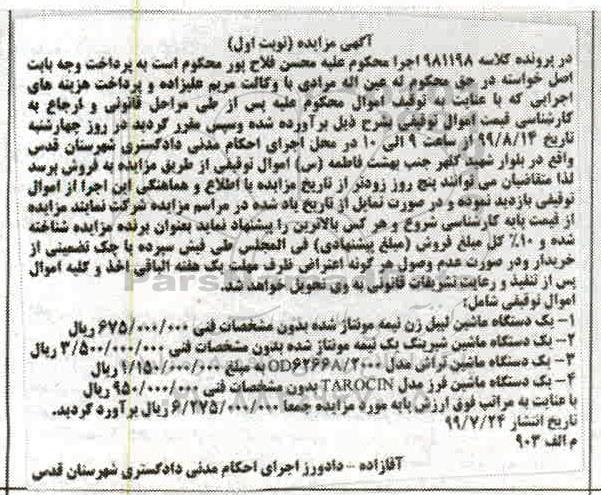 آگهی مزایده (نوبت اول)
در پرونده کلاسه ۹۸۱۱۹۸ اجرا محکوم علیه محسن فلاح پور محکوم است به پرداخت وجه بابت
اصل خواسته در حق محکوم له عین اله مرادی با وکالت مریم علیزاده و پرداخت هزینه های
اجرایی که با عنایت به توقیف اموال محکوم علیه پس از طی مراحل قانونی و ارجاع به
کارشناسی قیمت اموال توقیفی بشرح ذیل برآورده شده وسپس مقرر گردید در روز چهارشنبه
تاریخ ۹۹/۸/۱۴ از ساعت ۹ الی ۱۰ در محل اجرای احکام مدنی دادگستری شهرستان قدس
واقع در بلوار شهید کلهر جنب بهشت فاطمه (س) اموال توقیفی از طریق مزایده به فروش برسد
لذا متقاضیان می توانند پنج روز زودتر از تاریخ مزایده با اطلاع و هماهنگی این اجرا از اموال
توقیفی بازدید نموده و در صورت تمایل از تاریخ یاد شده در مراسم مزایده شرکت نمایند مزایده
از قیمت پایه کارشناسی شروع و هر کس بالاترین را پیشنهاد نماید بعنوان برنده مزایده شناخته
شده و ۱۰٪ کل مبلغ فروش (مبلغ پیشنهادی) فی المجلس طی فیش سپرده یا چک تضمینی از
خریدار ودر صورت عدم وصول هر گونه اعتراضی ظرف مهلت یک هفته الباقی اخذ و کلیه اموال
پس از تنفیذ و رعایت تشریفات قانونی به وی تحویل خواهد شد.
اموال توقیفی شامل:
۱- یک دستگاه ماشین لیبل زن نیمه مونتاژ شده بدون مشخصات فنی ۶۷۵/۰۰۰/۰۰۰ ریال
۲- یک دستگاه ماشین شیرینگ پک نیمه مونتاژ شده بدون مشخصات فنی ۳/۵۰۰/۰۰۰/۰۰۰ ریال
۳- یک دستگاه ماشین تراش مدل OD۶۲۶۶A/۲۰۰۰ به مبلغ ۱/۱۵۰/۰۰۰/۰۰۰ ریال
۴- یک دستگاه ماشین فرز مدل TAROCIN بدون مشخصات فنی ۹۵۰/۰۰۰/۰۰۰ ریال
با عنایت به مراتب فوق ارزش پایه مورد مزایده جمعا ۶/۲۷۵/۰۰۰/۰۰۰ ریال برآورد گردید.
تاریخ انتشار ۹۹/۷/۲۴
م الف ۹۰۳
آقازاده - دادورز اجرای احکام مدنی دادگستری شهرستان قدس